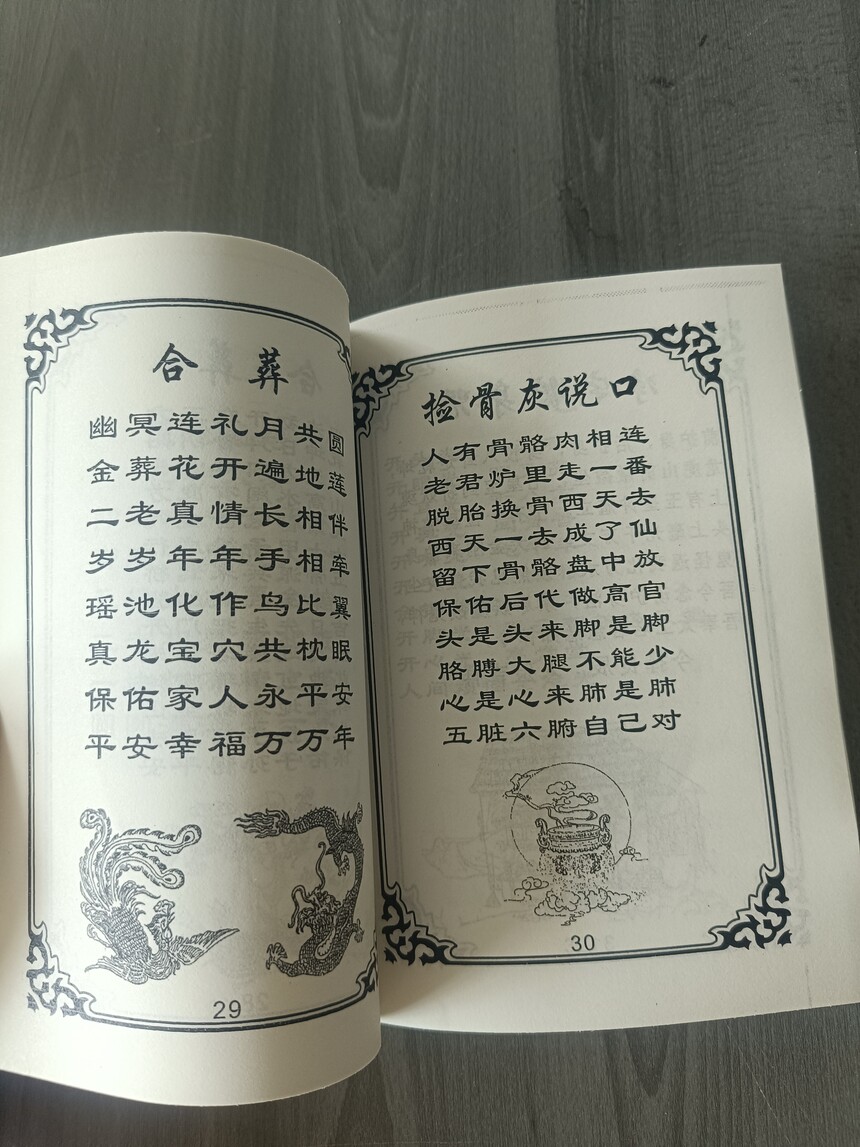 合葬
幽冥连礼月共圆
金葬花开遍地莲
二老真情长相伴
岁岁年年手相牵
瑶池化作鸟比翼
真龙宝穴共枕眠
保佑家人永平安
平安幸福万万年
29
捡骨灰说口
人有骨骼肉相连
老君炉里走一番
脱胎换骨西天去
西天一去成了仙
留下骨骼盘中放
保佑后代做高官
头是头来脚是脚
胳膊大腿不能少
心是心来肺是肺
五脏六腑自己对
30